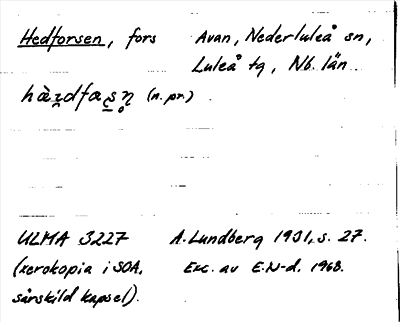 Hedforsen, fors Avan, Nederluleå sn,
Luleå tg, Nb. län
(n. pr.)
ULMA 3227 A. Lundberg 1931, s. 27.
(xerokopia i SOA, Exc. av E.N-d, 1968.
särskild kapsel).